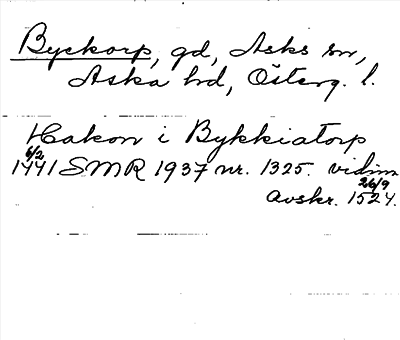 Byckorp, gd, Asks sn,
Aska hd, Österg. l.
Hakon i Bykkiatorp
6/2
1441 SMR 1937 nr. 1325. vidim
26/9
Avskr. 1524.